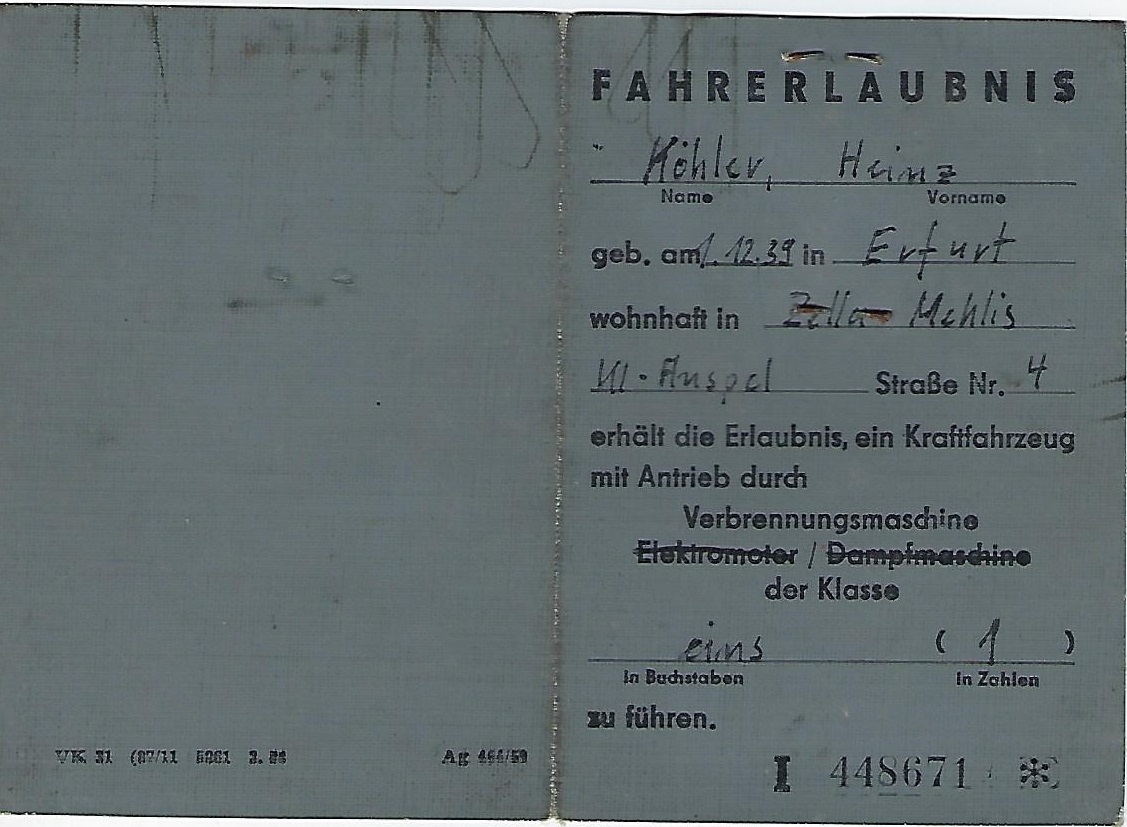 FAHRERLAUBNIS
Köhler, Heinz
Name Vorname
geb. am 1.12.39 in Erfurt
wohnhaft in Zella-Mehlis
Straße Nr. 4
erhält die Erlaubnis, ein Kraftfahrzeug
mit Antrieb durch
Verbrennungsmaschine
Elektromotor / Dampfmaschine
der Klasse
eins ( 1 )
in Buchstaben in Zahlen
zu führen.
I 448671
VK 31 Ag